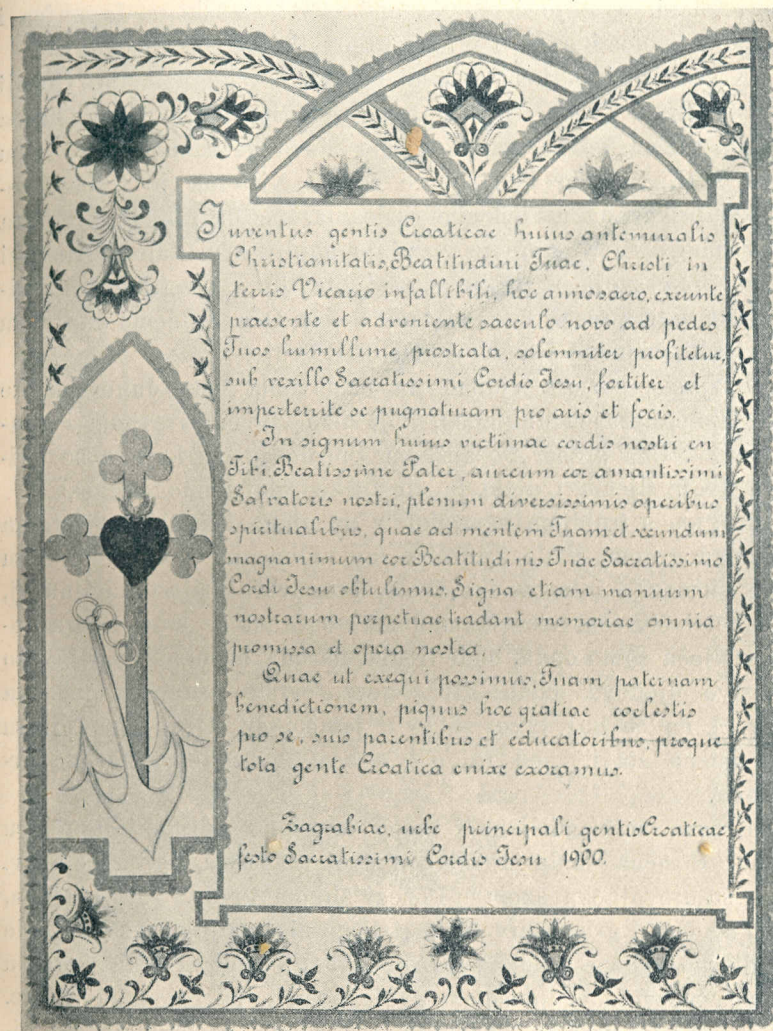 Juventus gentis Croaticae huius antemuralis
Christianitatis, Beatitudini Tuae, Christi in
terris Vicario infallibili, hoc anno sacro, exeunte
praesente et adveniente saeculo novo ad pedes
Tuos humillime prostrata, solemniter profitetur,
sub vexillo Sacratissimi Cordis Jesu, fortiter et
imperterrite se pugnaturam pro aris et focis.
In signum huius victimae cordis nostri en
Tibi, Beatissime Pater, aureum cor amantissimi
Salvatoris nostri, plenum diversissimis operibus
spiritualibus, quae ad mentem Tuam et secundum
magnanimum cor Beatitudinis Tuae Sacratissimo
Cordi Jesu obtulimus. Signa etiam manuum
nostrarum perpetuae tradant memoriae omnia
promissa et opera nostra.
Quae ut exequi possimus, Tuam paternam
benedictionem, pignus hoc gratiae coelestis
pro se, suis parentibus et educatoribus, proque
tota gente Croatica enixe exoramus.
Zagrabiae, urbe principali gentis Croaticae,
festo Sacratissimi Cordis Jesu 1900.